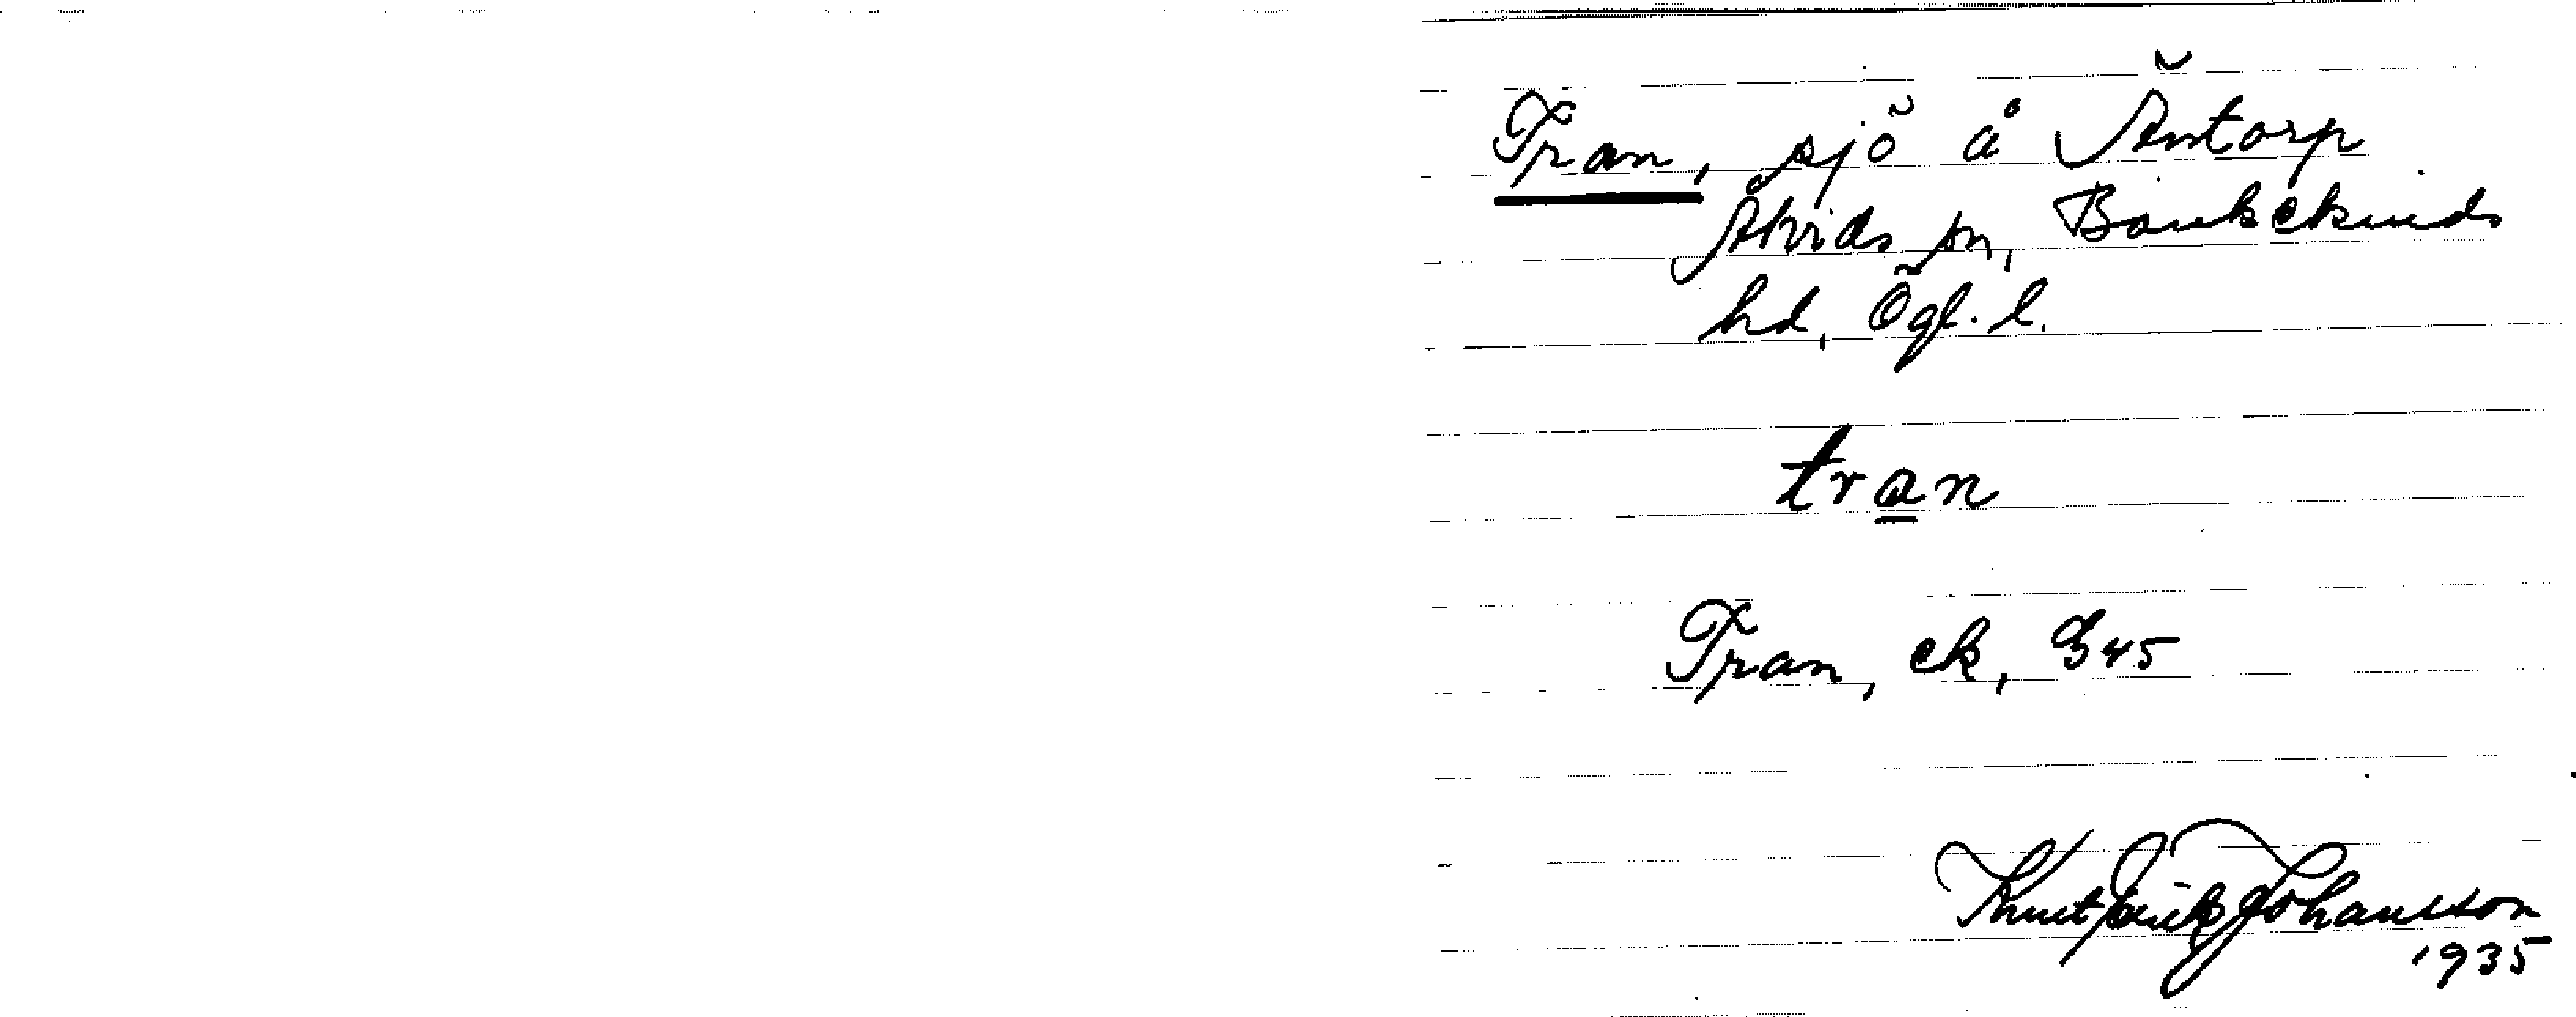 Tran, sjö å Äntorp
Åtvids sn, Bankekinds
hd, Ögl. l.
tran
Tran, ek, G45
Knut Erik Johansson
1935